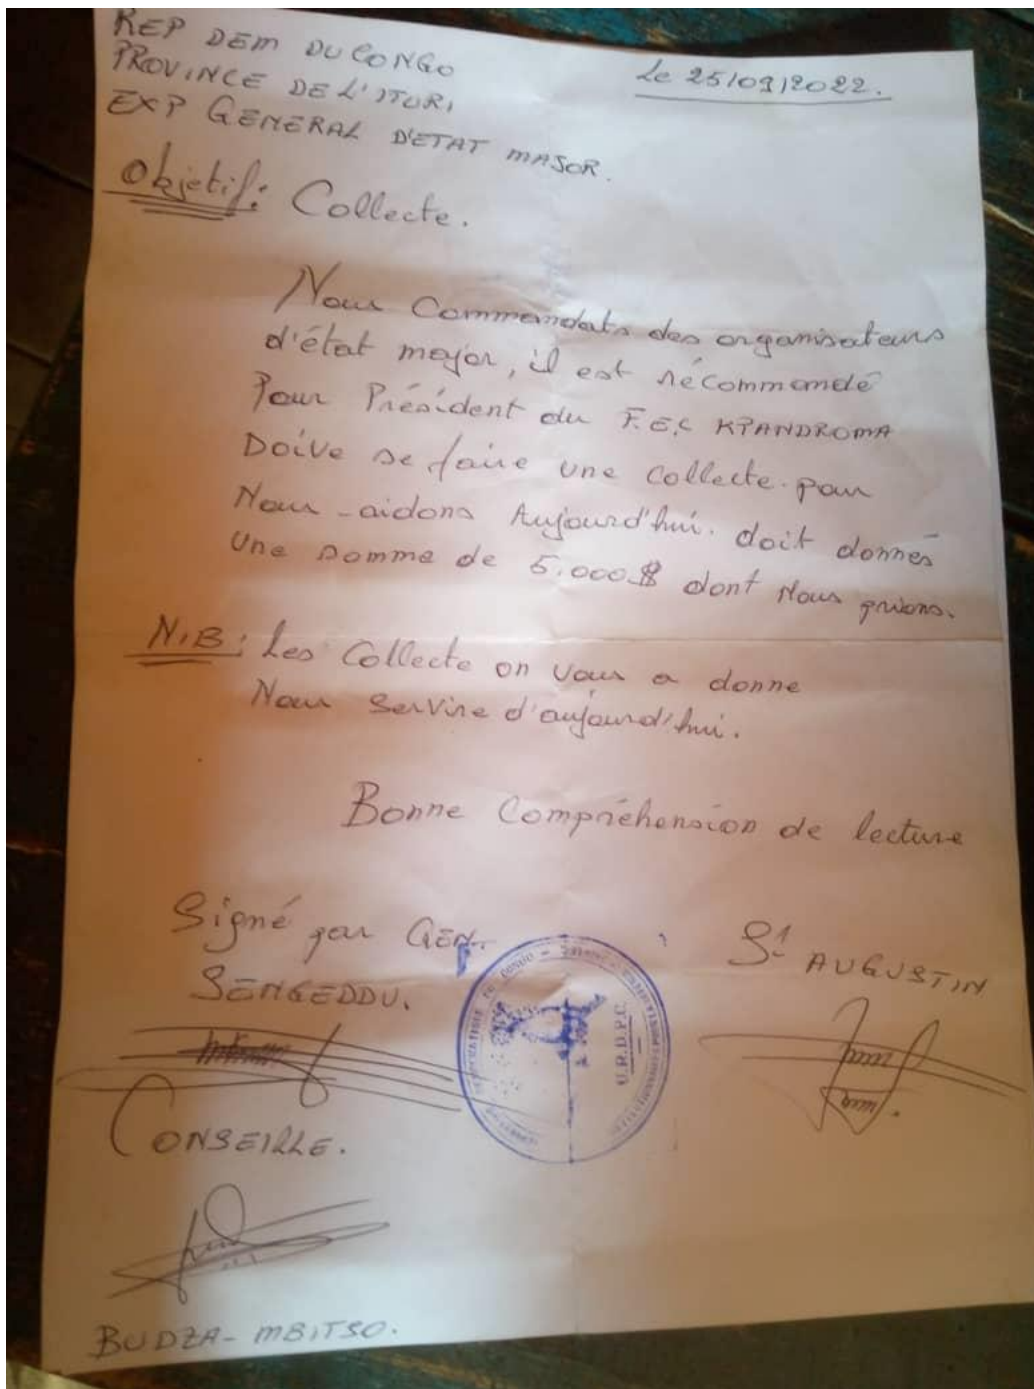 REP DEM DU CONGO
PROVINCE DE L'ITURI
EXP GENERAL D'ETAT MASOR.
Le 25/09/2022.
Objetif: Collecte.
Nous Commandats des organisateurs
d'état major, il est récommandé
Pour Président du F.E.C KPANDROMA
Doive se faire une collecte pour
Nous-aidons Aujourd'hui. doit donnés
Une somme de 5.000$ dont Nous prions.
N.B: Les Collecte on vous a donne
Nous Servire d'aujourd'hui.
Bonne Compréhension de lecture
Signé par GEN.
SENGEDDU.
St AUGUSTIN
U.R.D.P.C.
CONSEILLE.
BUDZA-MBITSO.